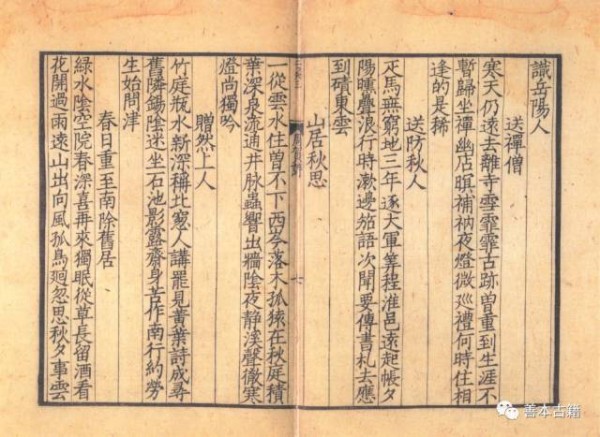 識岳陽人
送禪僧
寒天仍遠去離寺雪霏霏古跡曽重到生涯不
暫歸坐禪幽店暝補衲夜燈微巡禮何時住相
逢的是稀
送防秋人
疋馬無窮地三年逐大軍筭程淮邑遠起帳夕
陽曛疊浪行時漱邊笳語次聞要傳書札去應
到磧東雲
山居秋思
一從雲水住曽不下西岑落木孤猿在秋庭積
葉深泉流通井脉蟲響出牆陰夜静溪聲徹寒
燈尚獨吟
贈然上人
竹庭瓶水新深稱北窻人講罷見黄葉詩成尋
舊隣錫陰迷坐石池影露齋身苦作南行約勞
生始問津
春日重至南除舊居
綠水陰空院春深喜再來獨眠從草長留酒看
花開過雨遠山出向風孤鳥廻忽思秋夕事雲
善本古籍